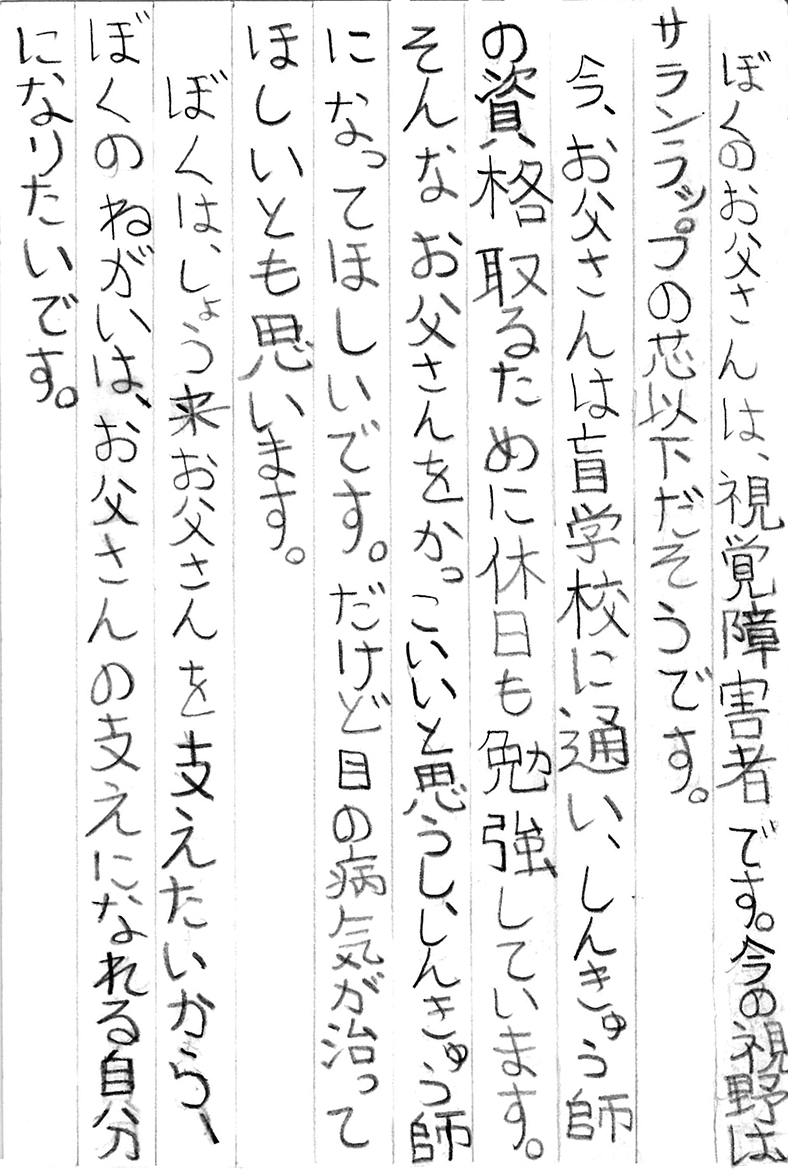 ぼくのお父さんは、視覚障害者です。今の視野は
サランラップの芯以下だそうです。
今、お父さんは盲学校に通い、しんきゅう師
の資格取るために休日も勉強しています。
そんなお父さんをかっこいいと思うし、しんきゅう師
になってほしいです。だけど目の病気が治って
ほしいとも思います。
ぼくは、しょう来お父さんを支えたいから、
ぼくのねがいは、お父さんの支えになれる自分
になりたいです。